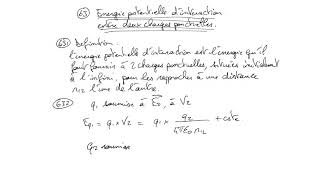 63 Energie potentielle d'interaction
entre deux charges ponctuelles.
631 Définition.
l'énergie potentielle d'interaction est l'énergie qu'il
faut fournir à 2 charges ponctuelles, situées initialement
à l'infini, pour les rapprocher à une distance
r12 l'une de l'autre.
632 q1 soumise à E2, à V2
Eq1 = q1 x V2 = q1 x q2 / 4πε0 r12 + cste
q2 soumise